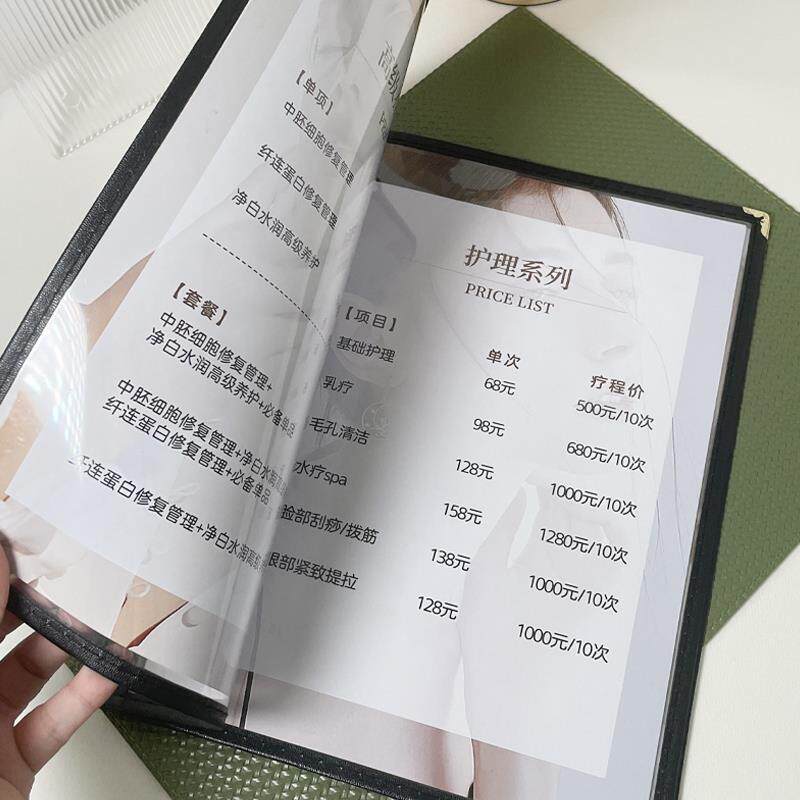 【单项】
中胚细胞修复管理
纤连蛋白修复管理
净白水润高级养护
【套餐】
中胚细胞修复管理+
净白水润高级养护+必备单品
中胚细胞修复管理+净白水润
纤连蛋白修复管理+必备单品
纤连蛋白修复管理+净白水润高级
护理系列
PRICE LIST
【项目】 单次 疗程价
基础护理 68元 500元/10次
乳疗 98元 680元/10次
毛孔清洁 128元 1000元/10次
水疗spa 158元 1280元/10次
脸部刮痧/拨筋 138元 1000元/10次
眼部紧致提拉 128元 1000元/10次